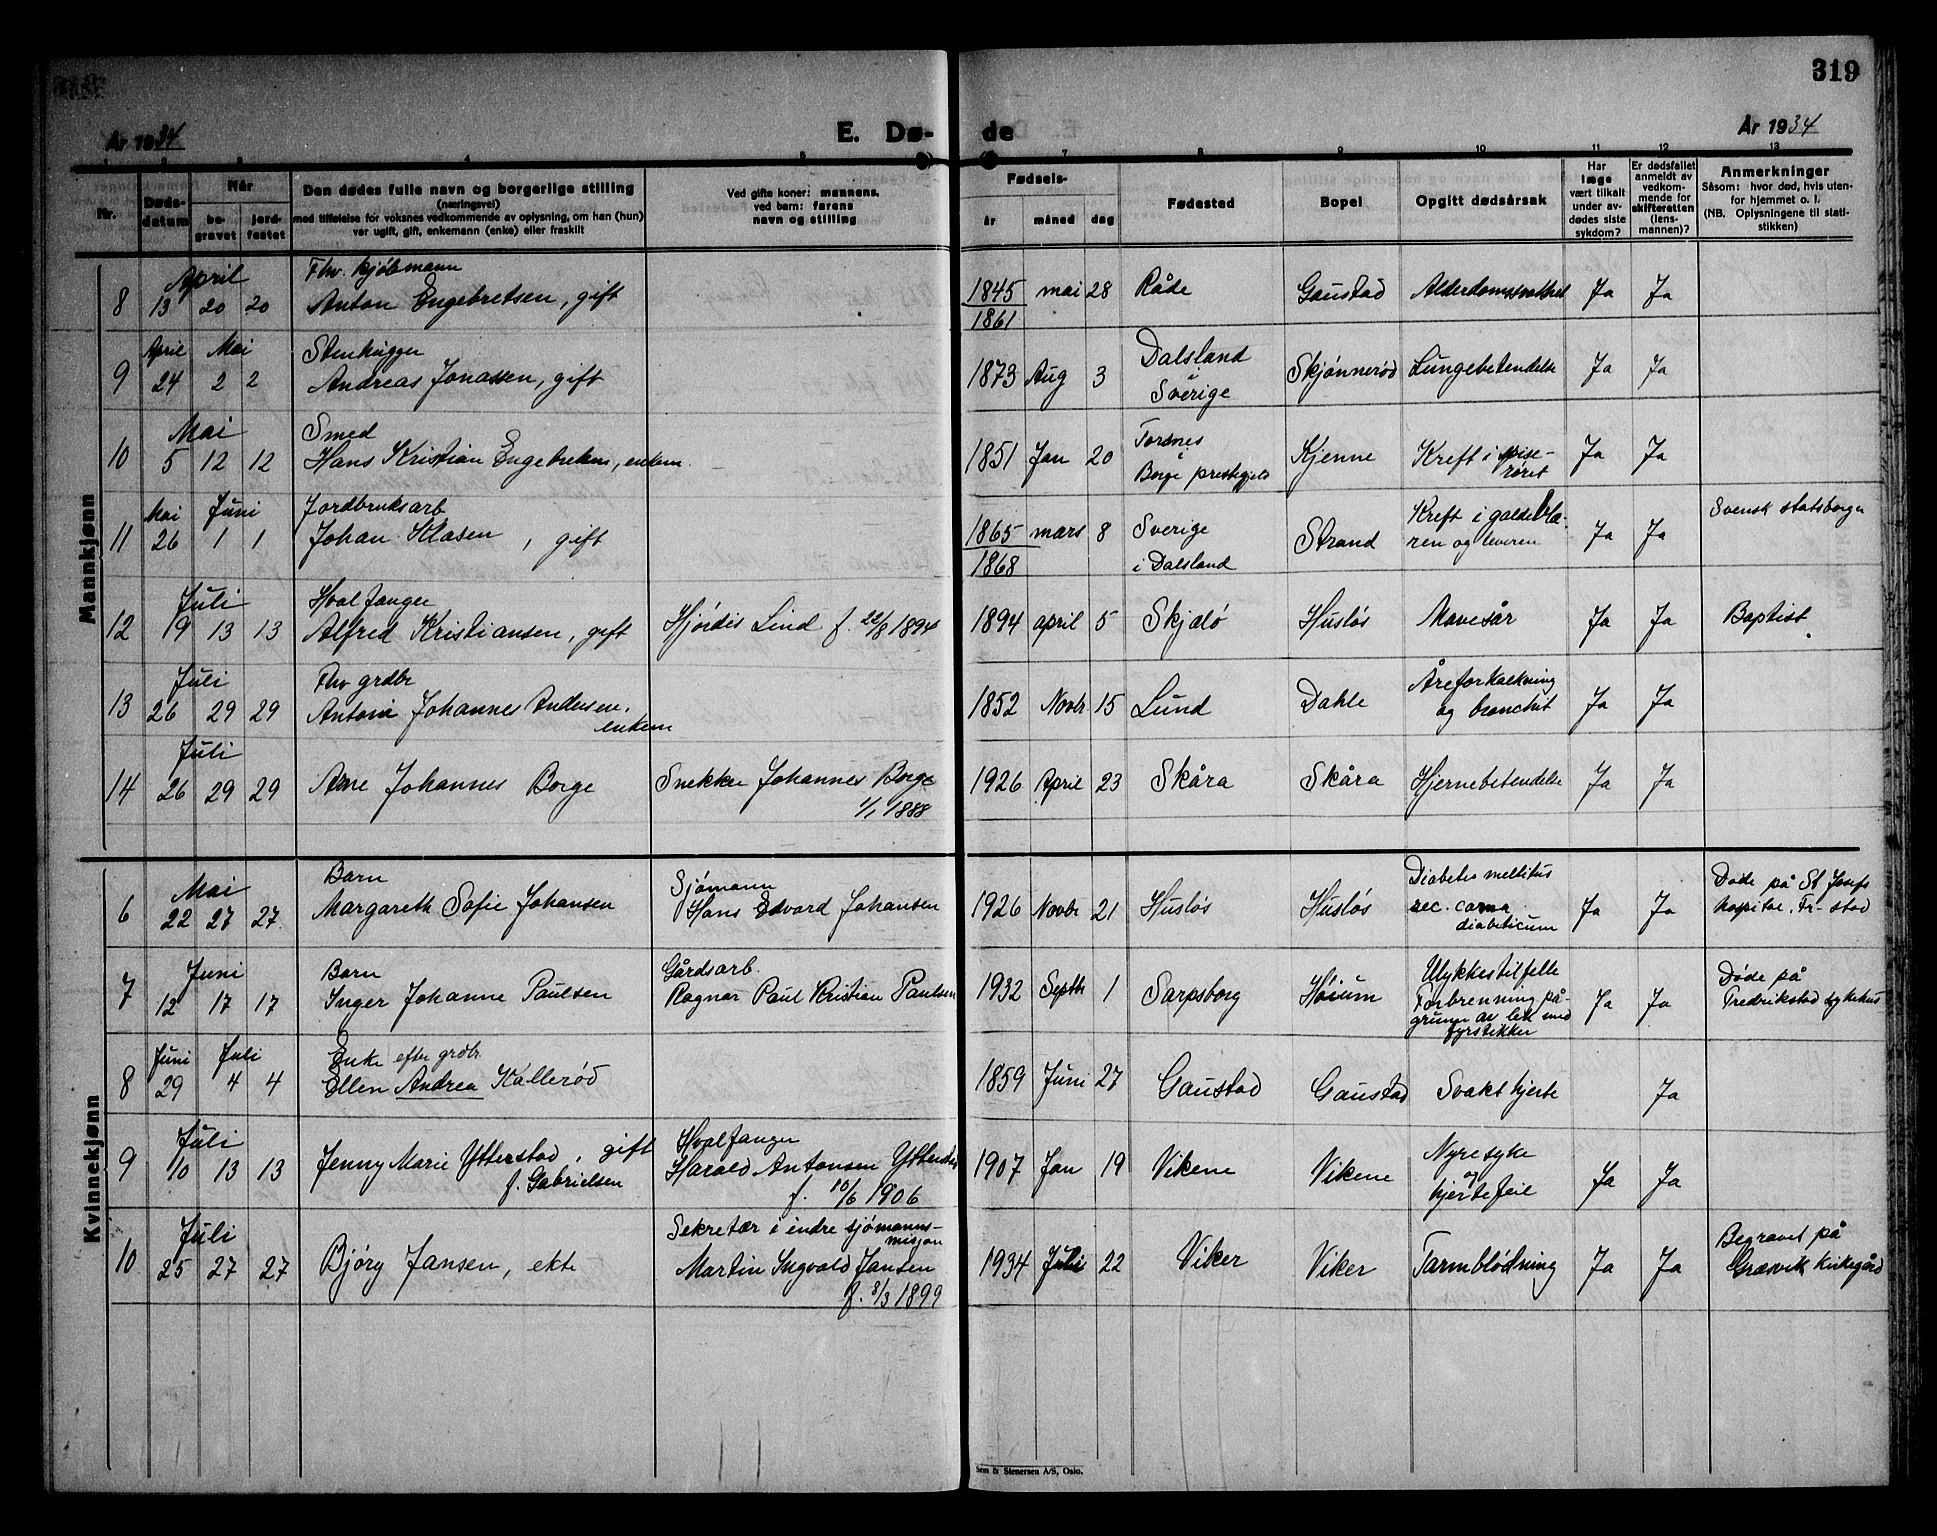 319
År 1934
E. Dø-
de
År 1934
1 2 3 4 5 7 8 9 10 11 12 13
Nr.
Døds-
datum
Når
be-
gravet
jord-
festet
Den dødes fulle navn og borgerlige stilling
(næringsvei)
med tilføielse for voksnes vedkommende av oplysning, om han (hun)
var ugift, gift, enkemann (enke) eller fraskilt
Ved gifte koner: mannens,
ved barn: farens
navn og stilling
Fødsels-
år
måned
dag
Fødested
Bopel
Opgitt dødsårsak
Har
læge
vært tilkalt
under av-
dødes siste
sykdom?
Er dødsfallet
anmeldt av
vedkom-
mende for
skifteretten
(lens-
mannen)?
Anmerkninger
Såsom: hvor død, hvis uten-
for hjemmet o. l.
(NB. Oplysningene til stati-
stikken)
Mannkjønn
April Fhv. kjøbmann
8 13 20 20 Anton Engebretsen, gift 1845 mai 28 Råde Gaustad Alderdomssvakhet Ja Ja
1861
April Mai Stenhugger Dalsland
9 24 2 2 Andreas Jonassen, gift 1873 Aug 3 i Skjønnerød Lungebetendelse Ja Ja
Sverige
Mai Smed Torsnes
10 5 12 12 Hans Kristian Engebretsen, enkem. 1851 Jan 20 i Kjenne Kreft i spise- Ja Ja
Borge prestegjeld røret
Mai Juni Jordbruksarb Kreft i galdeblæ- Svensk statsborger
11 26 1 1 Johan Klasen, gift 1865 mars 8 Sverige Strand ren og leveren Ja Ja
1868 i Dalsland
Juli Hvalfanger
12 9 13 13 Alfred Kristiansen, gift Hjørdis Lind f. 22/8 1894 1894 april 5 Skjælø Husløs Mavesår Ja Ja Baptist
Juli Fhv grdbr Åreforkalkning
13 26 29 29 Anton Johannes Andersen, 1852 Novbr 15 Lund Dahle og bronchit Ja Ja
enkem
Juli
14 26 29 29 Arne Johannes Borge Snekker Johannes Borge 1926 April 23 Skåra Skåra Hjernebetendelse Ja Ja
1/1 1888
Kvinnekjønn
Mai Barn Sjømann Diabetes mellitus Døde på St Josefs
6 22 27 27 Margareth Sofie Johansen Hans Edvard Johansen 1926 Novbr 21 Husløs Husløs sec. coma Ja Ja hospital, Fr-stad
diabeticum
Juni Barn Gårdsarb. Ulykkestilfelle Døde på
7 12 17 17 Inger Johanne Paulsen Ragnar Paul Kristian Paulsen 1932 Septbr 1 Sarpsborg Høium Forbrenning på- Ja Ja Fredrikstad sykehus
grunn av lek med
fyrstikker
Juni Juli Enke efter grdbr
8 29 4 4 Ellen Andrea Kallerød 1859 Juni 27 Gaustad Gaustad Svakt hjerte Ja
Juli Hvalfanger Nyresyke
9 10 13 13 Jenny Marie Ytterstad, gift Harald Antonsen Ytterstad 1907 Jan 19 Vikene Vikene og Ja Ja
f. Gabrielsen f. 10/6 1906 hjertefeil
Juli Sekretær i indre sjømanns- Begravet på
misjon
10 25 27 27 Bjørg Jansen, ekte Martin Ingvald Jansen 1934 Juli 22 Viker Viker Tarmblødning Ja Ja Græsvik kirkegård
f. 8/3 1899
Sem & Stenersen A/S, Oslo.